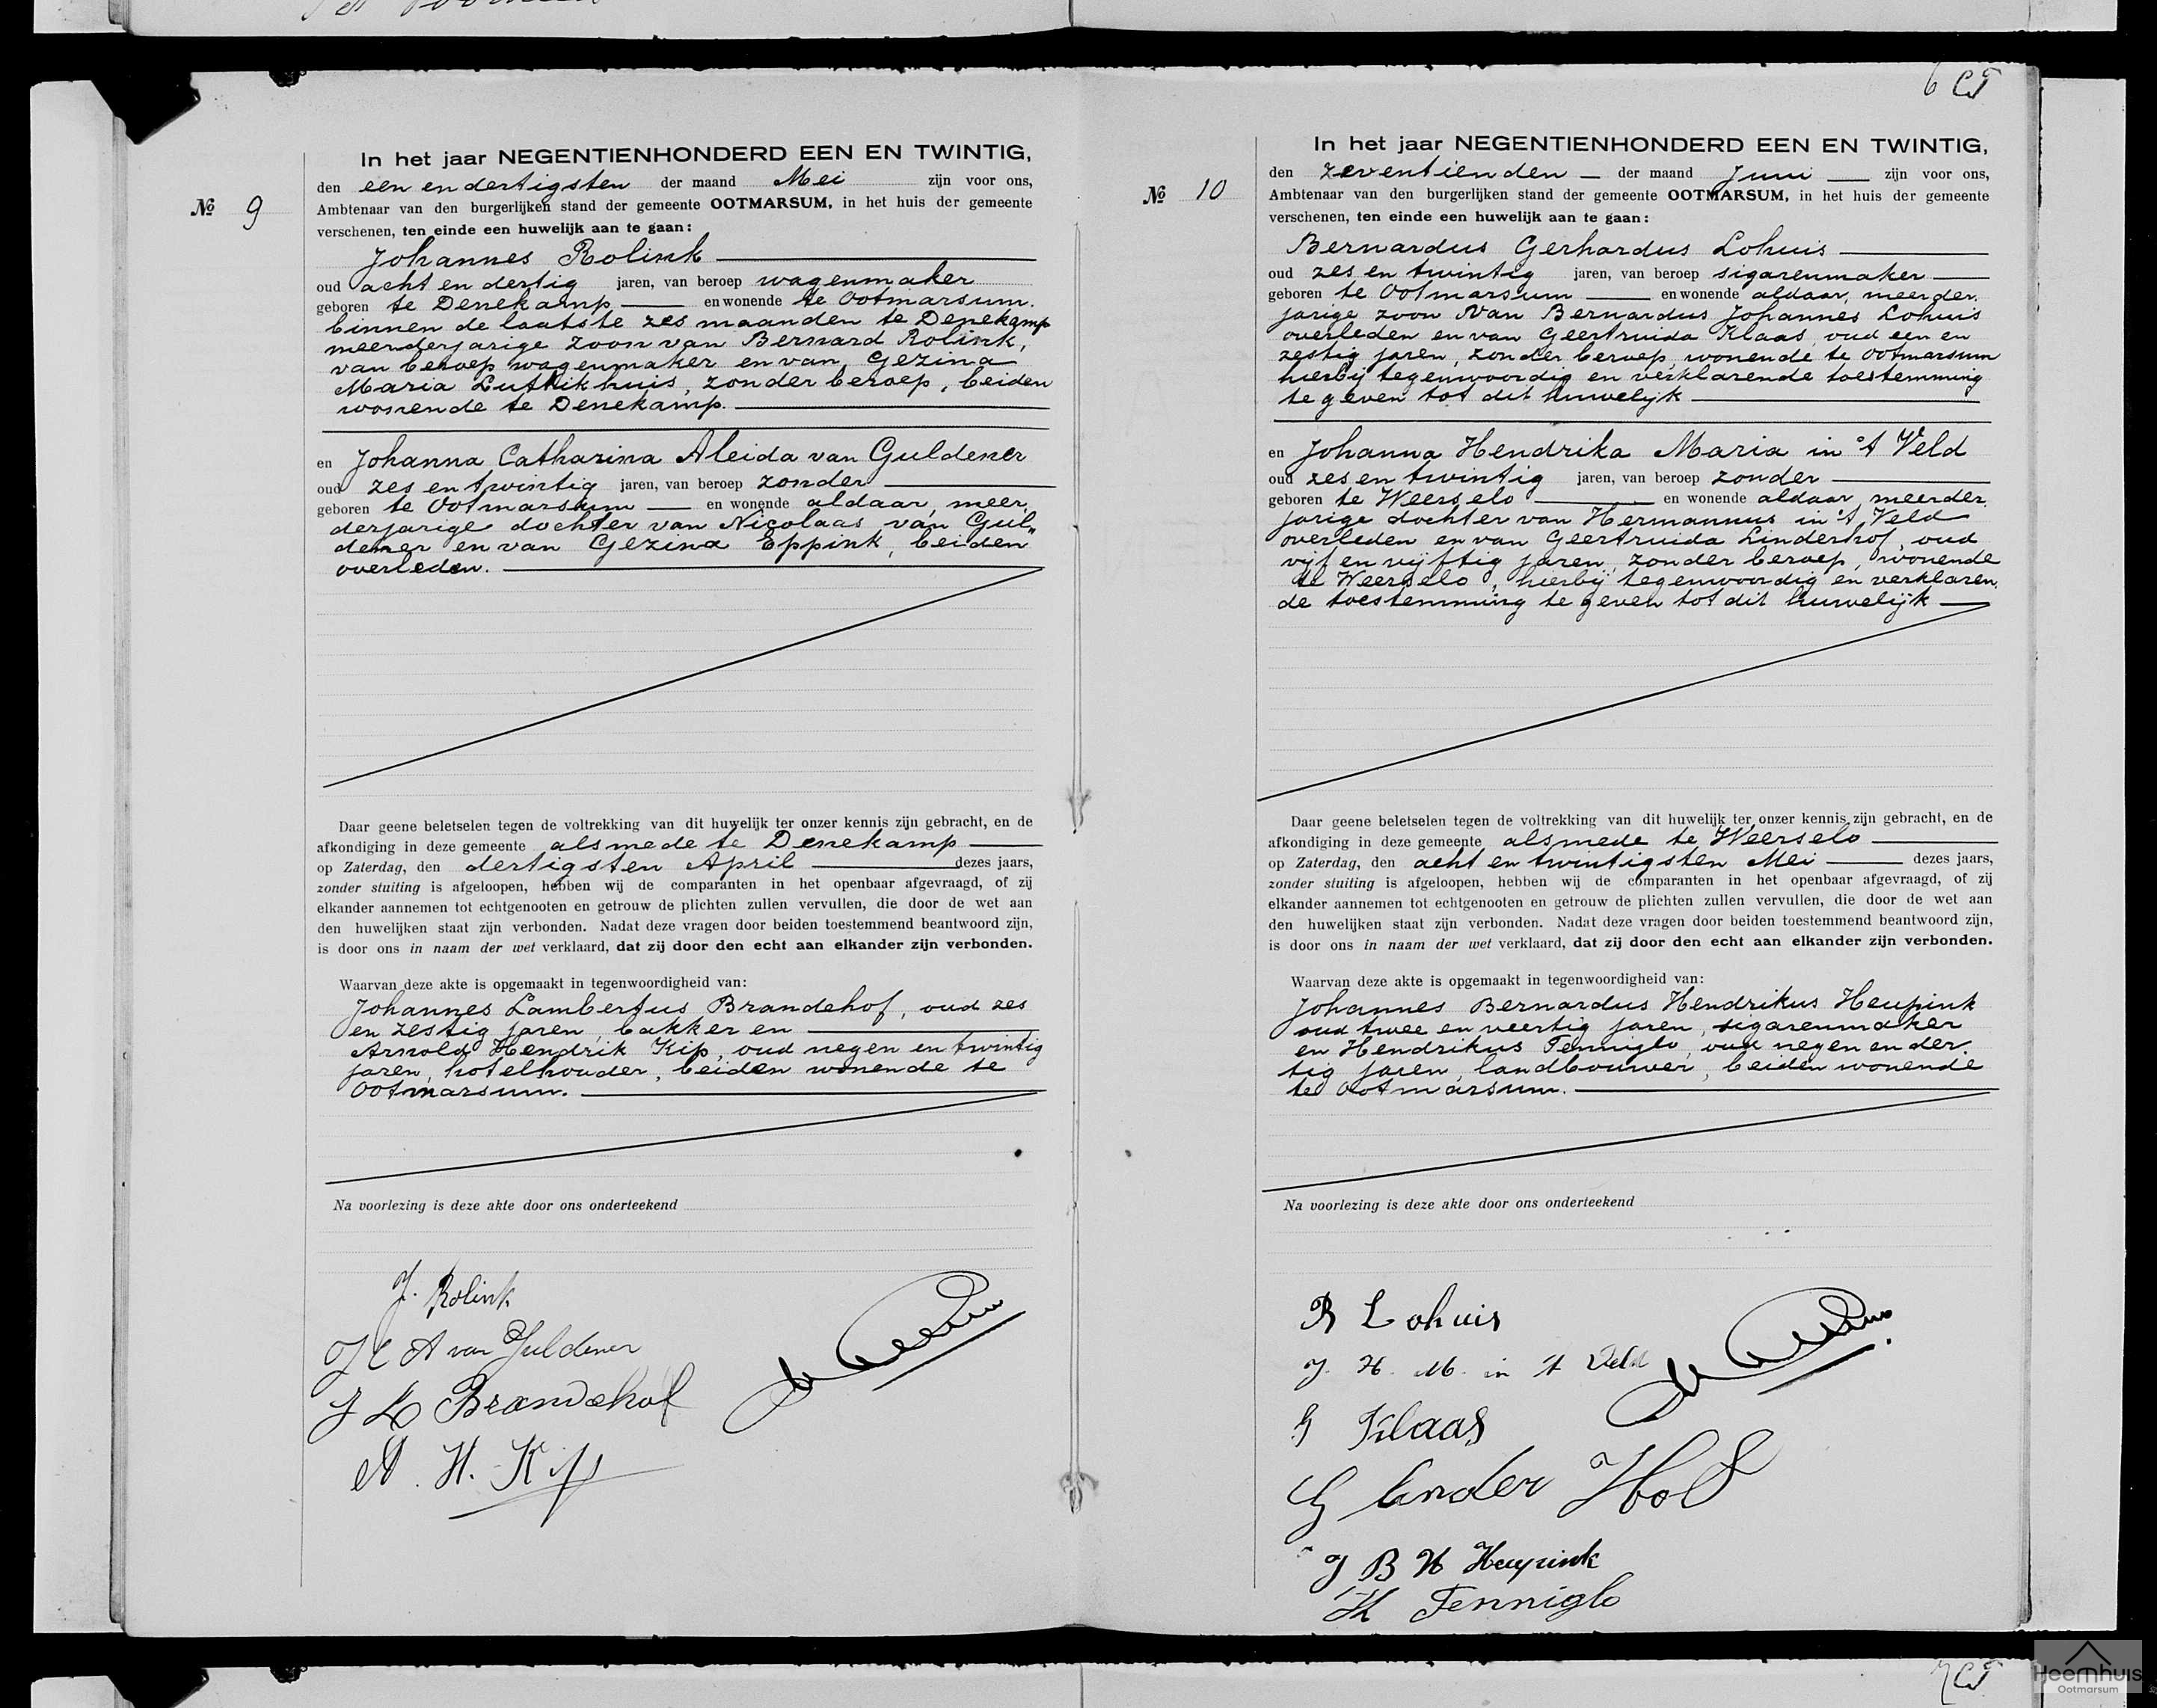 6
In het jaar NEGENTIENHONDERD EEN EN TWINTIG,
den een en dertigsten der maand Mei zijn voor ons,
№ 9
Ambtenaar van den burgerlijken stand der gemeente OOTMARSUM, in het huis der gemeente
verschenen, ten einde een huwelijk aan te gaan:
Johannes Rolink
oud acht en dertig jaren, van beroep wagenmaker
geboren te Denekamp en wonende te Ootmarsum.
binnen de laatste zes maanden te Denekamp
meerderjarige zoon van Bernard Rolink,
van beroep wagenmaker en van Gezina
Maria Luttikhuis, zonder beroep, beiden
wonende te Denekamp.
en Johanna Catharina Aleida van Guldener
oud zes en twintig jaren, van beroep zonder
geboren te Ootmarsum en wonende aldaar, meer,
derjarige dochter van Nicolaas van Gul„
dener en van Gezina Eppink, beiden
overleden.
Daar geene beletselen tegen de voltrekking van dit huwelijk ter onzer kennis zijn gebracht, en de
afkondiging in deze gemeente alsmede te Denekamp
op Zaterdag, den dertigsten April dezes jaars,
zonder stuiting is afgeloopen, hebben wij de comparanten in het openbaar afgevraagd, of zij
elkander aannemen tot echtgenooten en getrouw de plichten zullen vervullen, die door de wet aan
den huwelijken staat zijn verbonden. Nadat deze vragen door beiden toestemmend beantwoord zijn,
is door ons in naam der wet verklaard, dat zij door den echt aan elkander zijn verbonden.
Waarvan deze akte is opgemaakt in tegenwoordigheid van:
Johannes Lambertus Brandehof, oud zes
en zestig jaren, bakker en
Arnold Hendrik Kip, oud negen en twintig
jaren, hotelhouder, beiden wonende te
Ootmarsum.
Na voorlezing is deze akte door ons onderteekend
J. Rolink
J C A van Guldener
J L Brandehof
A. H. Kip
In het jaar NEGENTIENHONDERD EEN EN TWINTIG,
den zeventienden der maand Juni zijn voor ons,
№ 10
Ambtenaar van den burgerlijken stand der gemeente OOTMARSUM, in het huis der gemeente
verschenen, ten einde een huwelijk aan te gaan:
Bernardus Gerhardus Lohuis
oud zes en twintig jaren, van beroep sigarenmaker
geboren te Ootmarsum en wonende aldaar, meerder,
jarige zoon van Bernardus Johannes Lohuis
overleden en van Geertruida Klaas, oud een en
zestig jaren, zonder beroep, wonende te Ootmarsum
hierbij tegenwoordig en verklarende toestemming
te geven tot dit huwelijk
en Johanna Hendrika Maria in 't Veld
oud zes en twintig jaren, van beroep zonder
geboren te Weerselo en wonende aldaar, meerder,
jarige dochter van Hermannus in 't Veld
overleden en van Geertruida Linderhof, oud
vijf en vijftig jaren, zonder beroep, wonende
te Weerselo, hierbij tegenwoordig en verklaren,
de toestemming te geven tot dit huwelijk
Daar geene beletselen tegen de voltrekking van dit huwelijk ter onzer kennis zijn gebracht, en de
afkondiging in deze gemeente alsmede te Weerselo
op Zaterdag, den acht en twintigsten Mei dezes jaars,
zonder stuiting is afgeloopen, hebben wij de comparanten in het openbaar afgevraagd, of zij
elkander aannemen tot echtgenooten en getrouw de plichten zullen vervullen, die door de wet aan
den huwelijken staat zijn verbonden. Nadat deze vragen door beiden toestemmend beantwoord zijn,
is door ons in naam der wet verklaard, dat zij door den echt aan elkander zijn verbonden.
Waarvan deze akte is opgemaakt in tegenwoordigheid van:
Johannes Bernardus Hendrikus Heupink
oud twee en veertig jaren, sigarenmaker
en Hendrikus Tenniglo, oud negen en der,
tig jaren, landbouwer, beiden wonende
te Ootmarsum.
Na voorlezing is deze akte door ons onderteekend
B Lohuis
J. H. M. in 't Veld
G Klaas
G Linder Hof
J B H Heupink
H Tenniglo
7
Heemhuis
Ootmarsum